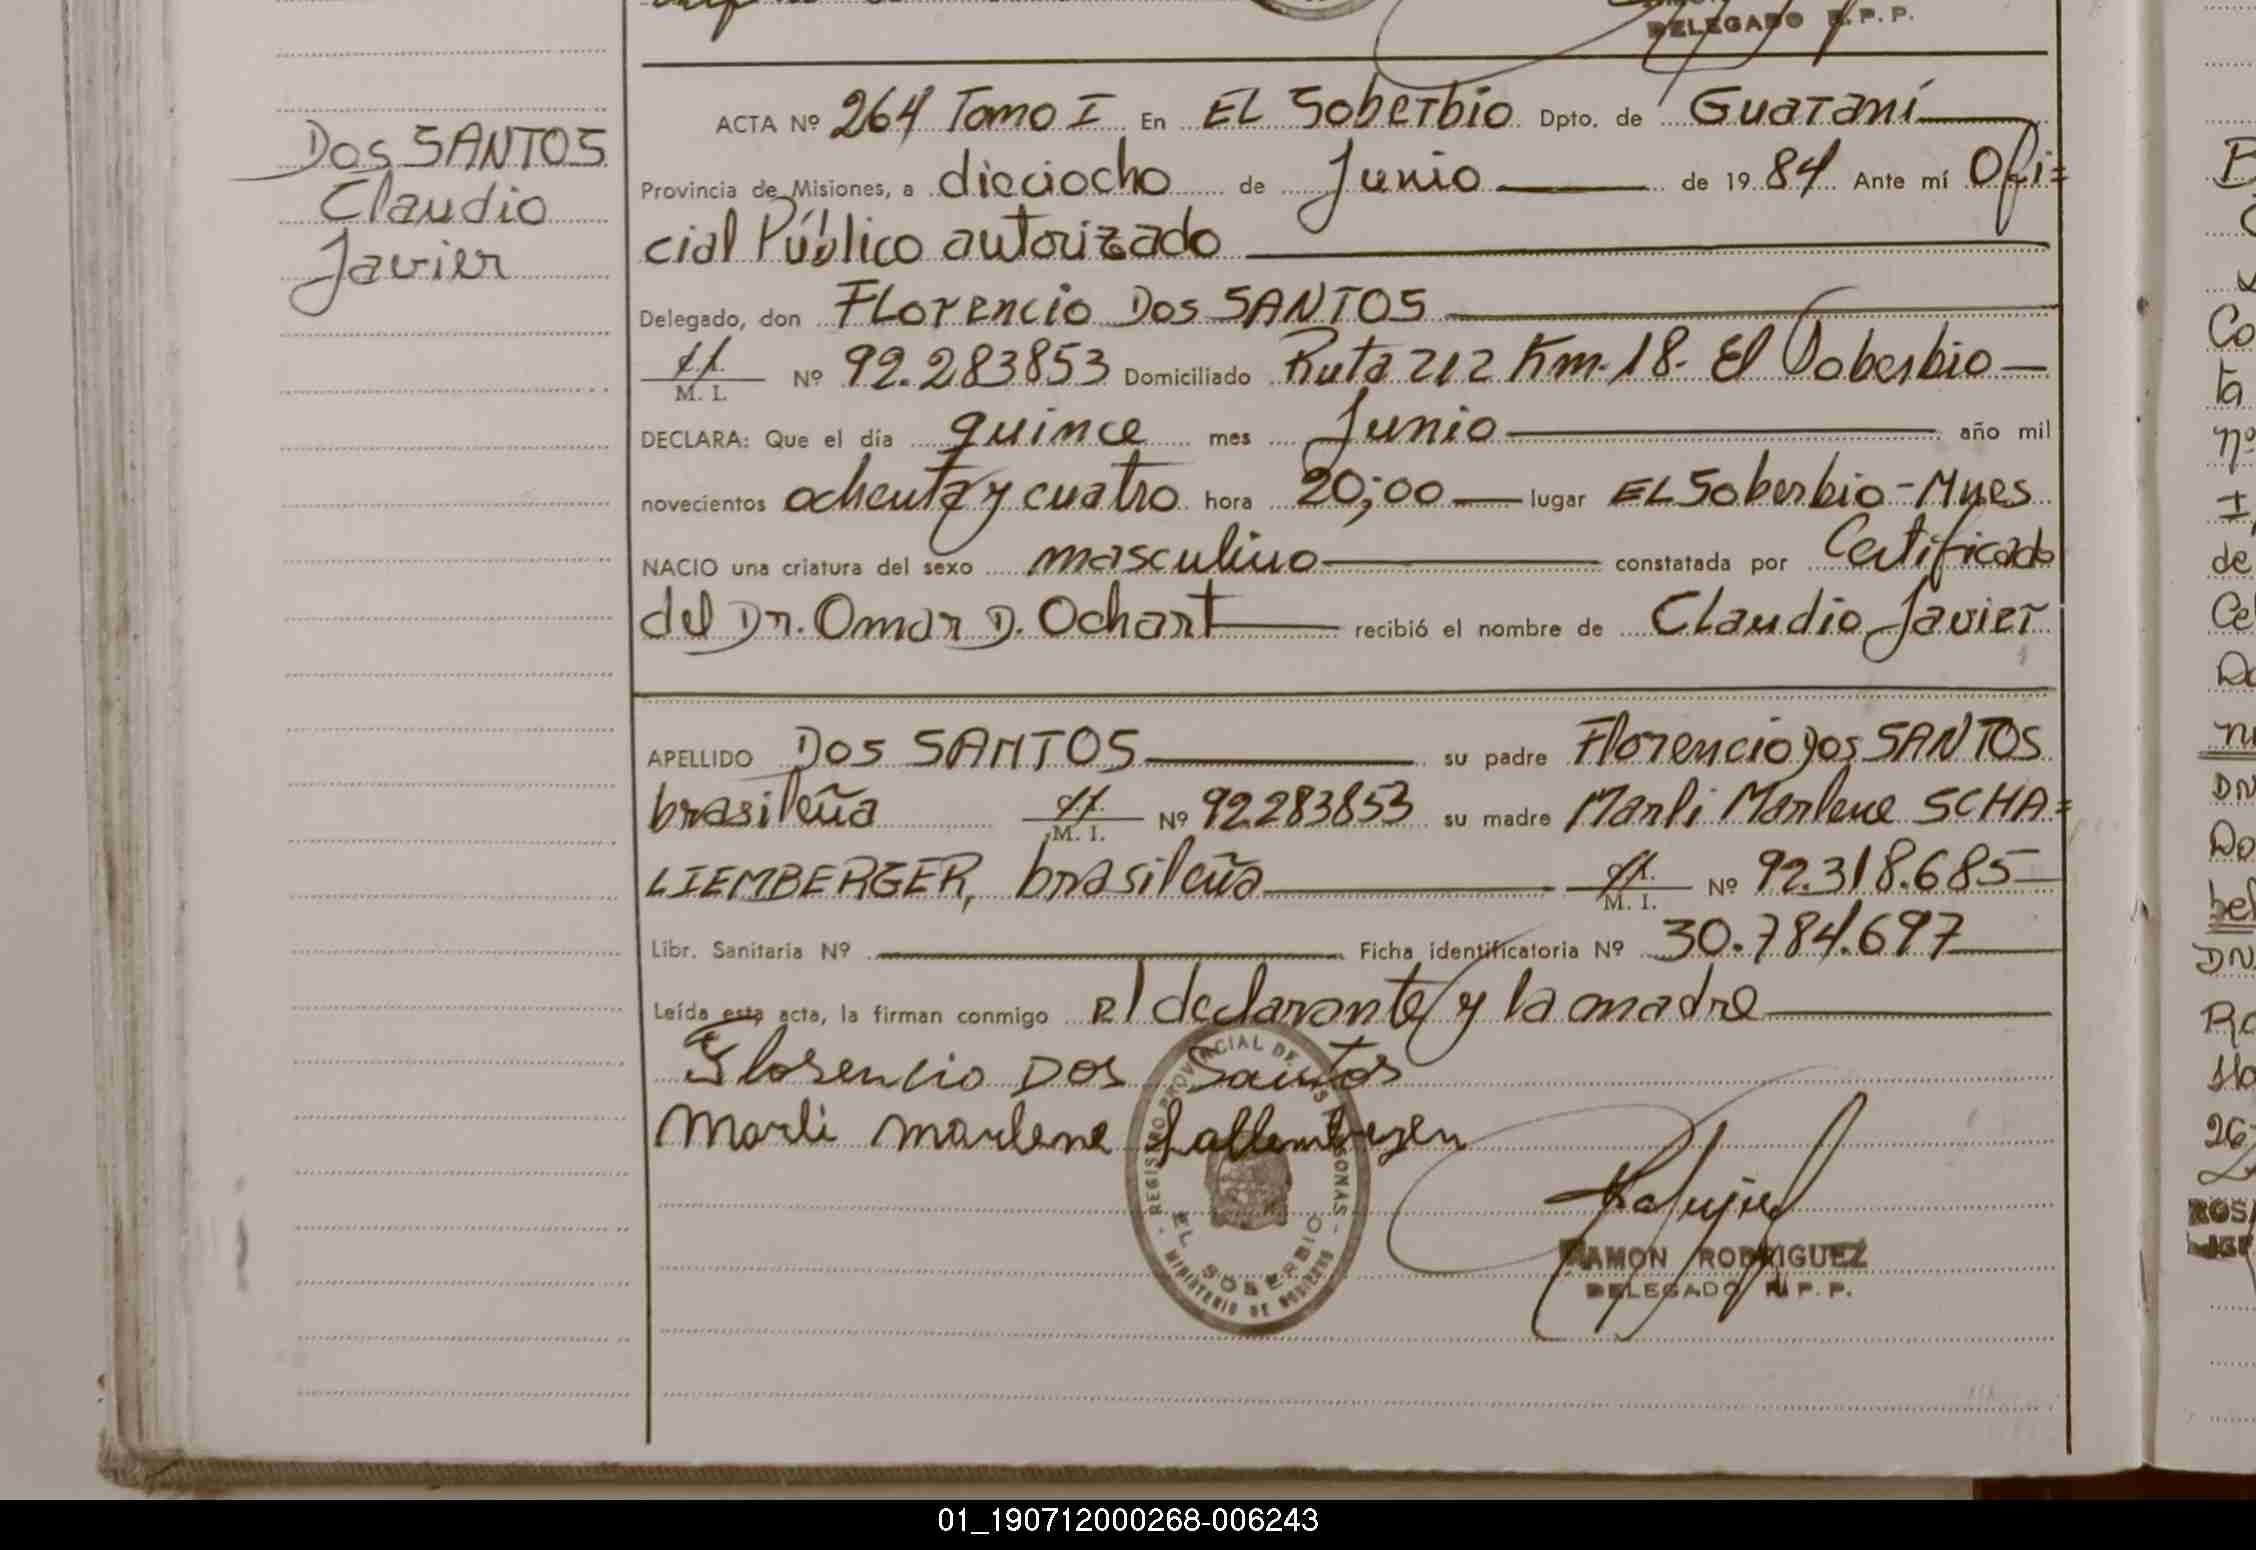 DELEGADO R. P. P.
Dos SANTOS
Claudio
Javier
ACTA Nº 264 Tomo I En EL Soberbio Dpto. de Guaraní
Provincia de Misiones, a dieciocho de Junio de 1984 Ante mí Ofi=
cial Público autorizado
Delegado, don FLorencio Dos SANTOS
M. I. Nº 92.283853 Domiciliado Ruta 212 Km-18- El Soberbio
DECLARA: Que el día quince mes Junio año mil
novecientos ochenta y cuatro hora 20;00 lugar EL Soberbio-Mnes
NACIO una criatura del sexo masculino constatada por Certificado
del Dr. Omar D. Ochart recibió el nombre de CLaudio Javier
APELLIDO Dos SANTOS su padre Florencio Dos SANTOS
brasileña M. I. Nº 92283853 su madre Marli Marlene SCHA=
LIEMBERGER, brasileña M. I. Nº 92.318.685
Libr. Sanitaria Nº Ficha identificatoria Nº 30.784.697
Leída esta acta, la firman conmigo el declarante y la madre
Florencio Dos Santos
Marli marlene
REGISTRO PROVINCIAL DE LAS PERSONAS
EL SOBERBIO
MINISTERIO DE GOBIERNO
RAMON RODRIGUEZ
DELEGADO R. P. P.
01_190712000268-006243